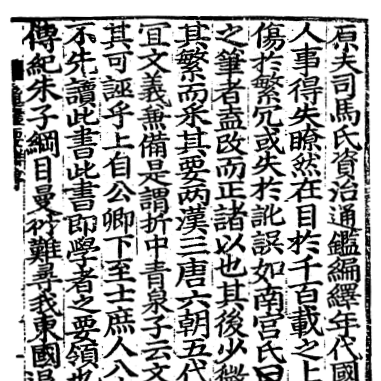 原夫司馬氏資治通鑑編繹年代國
人事得失瞭然在目於千百載之上
傷於繁冗或失於訛誤如南宮氏曰
之筆者盖改而正諸以也其後少微
其繁而采其要两漢三唐六朝五代
冝文義兼備是謂折中青泉子云文
其可誣乎上自公卿下至士庶人八
不先讀此書此書即學者之要領也
傳紀朱子綱目曼衍難尋我東國